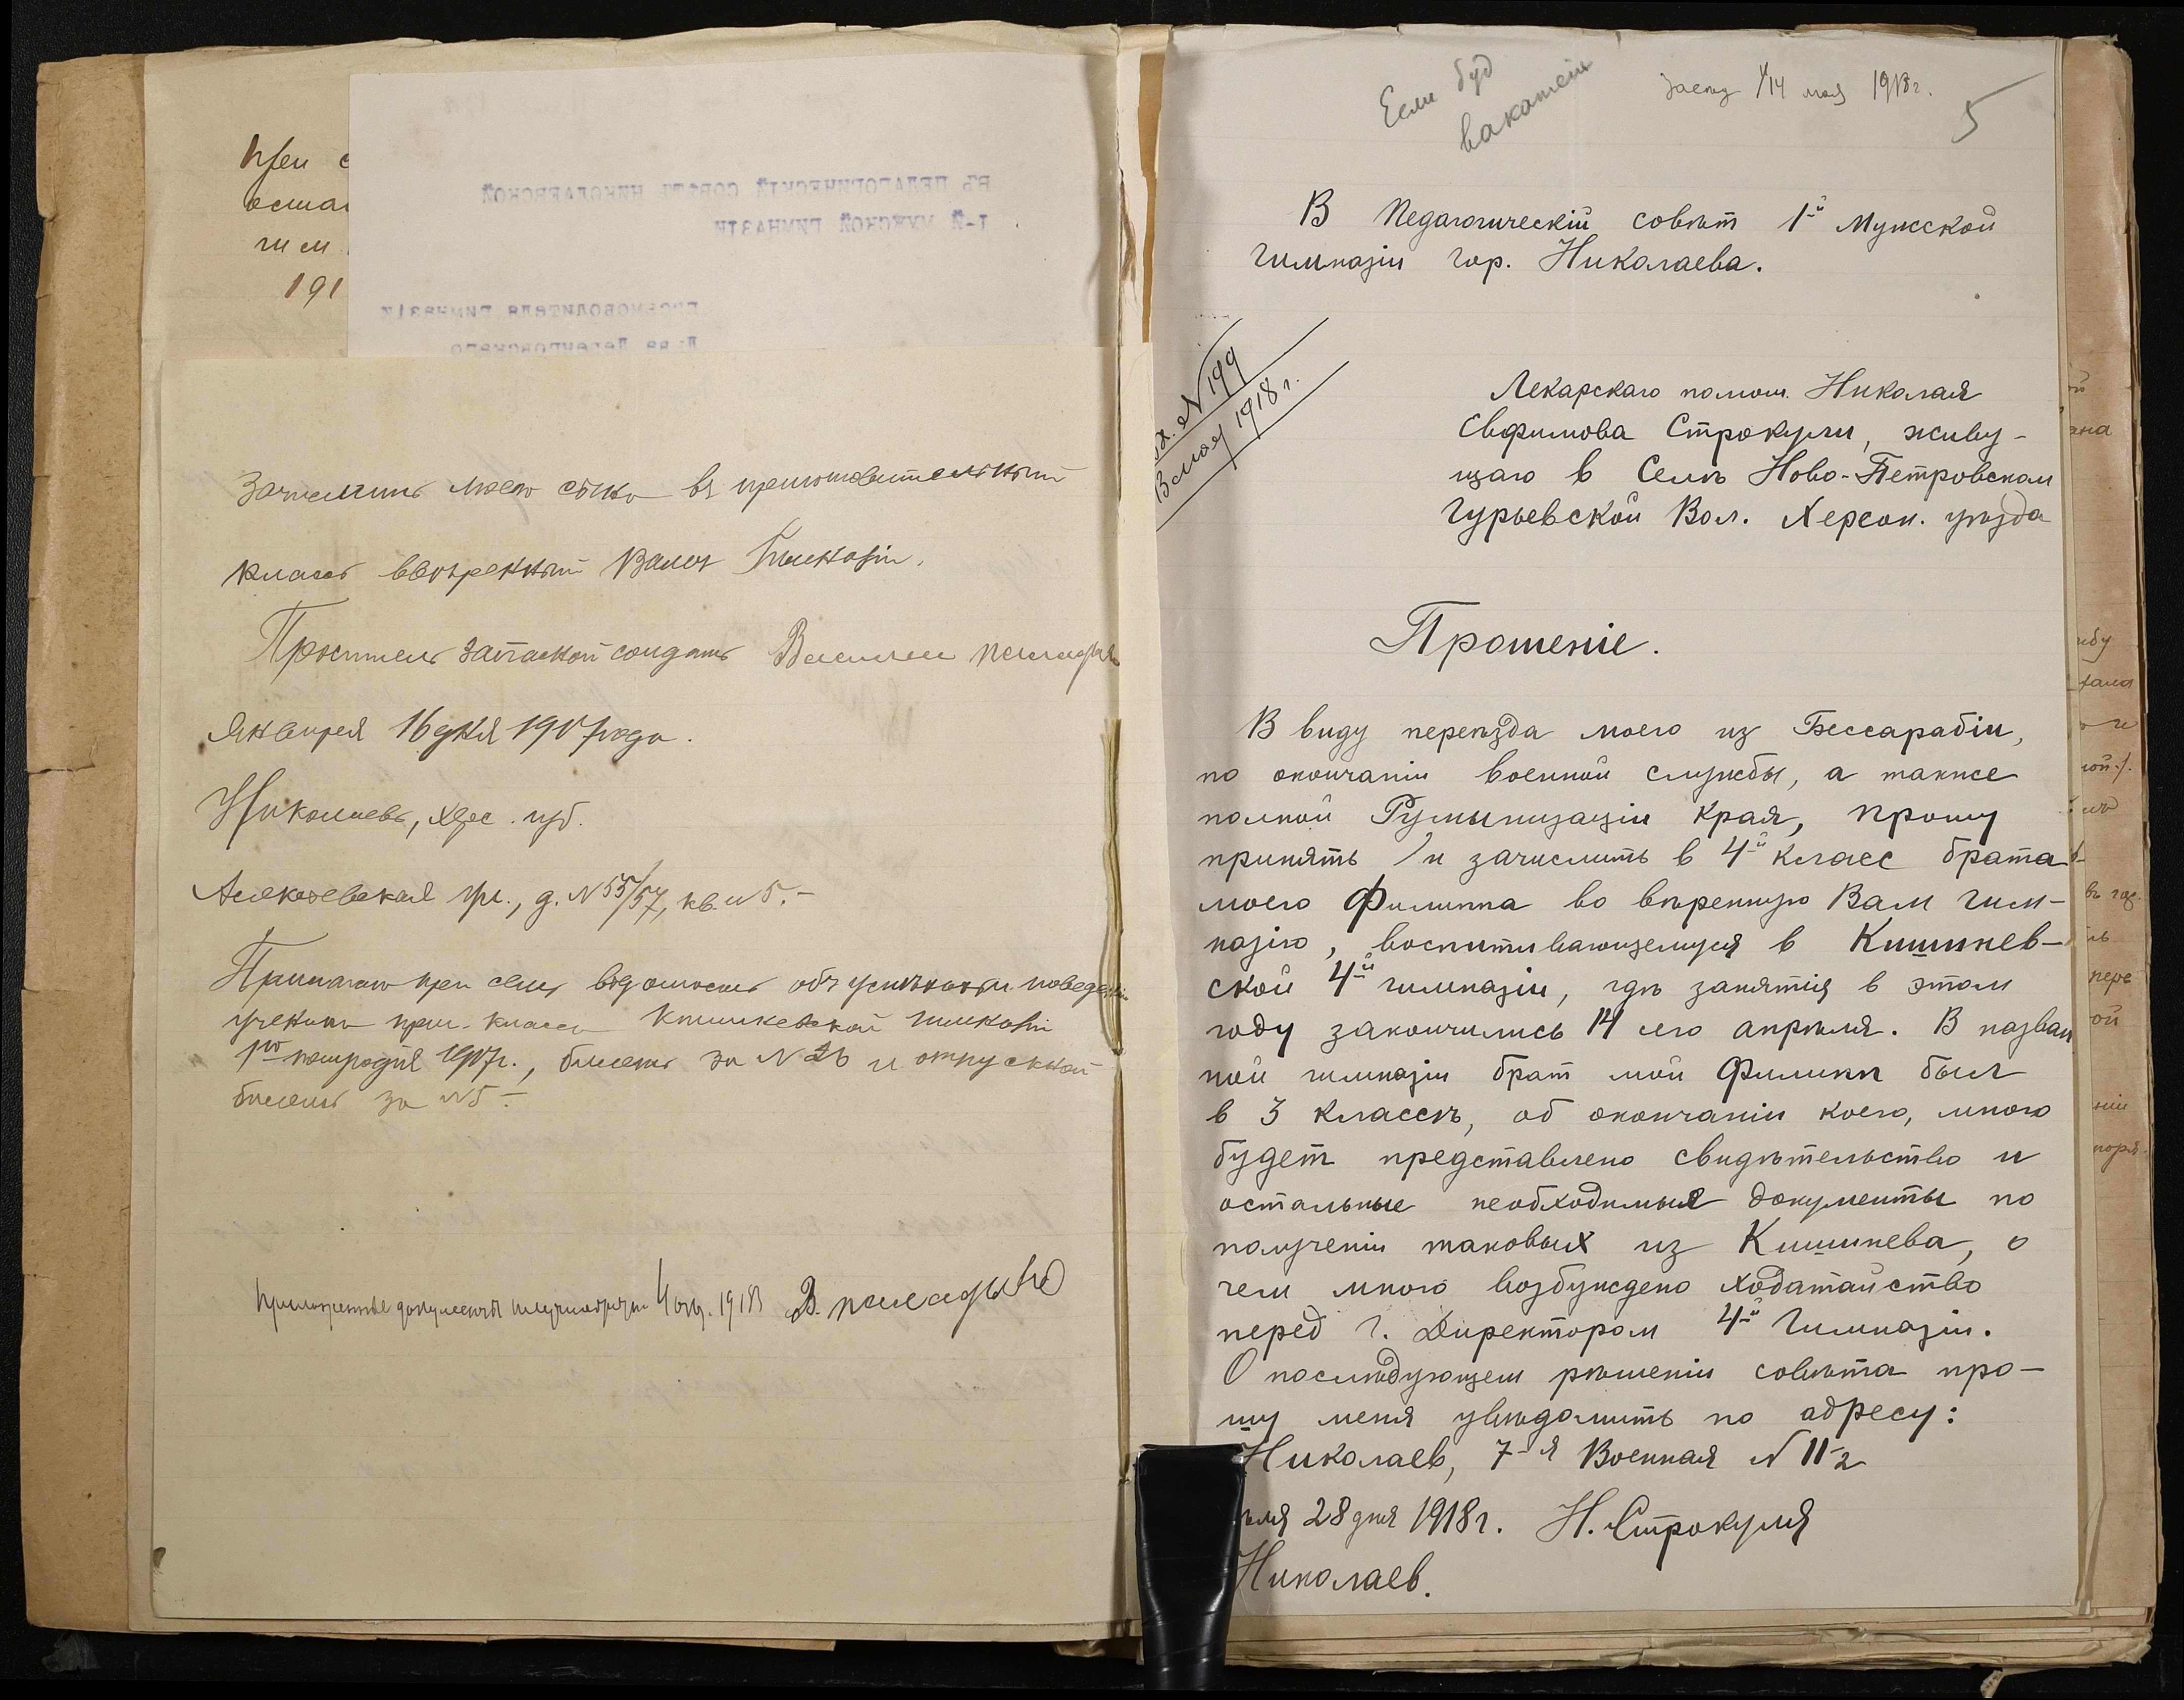 при
остав
гим
191
ВЪ ПЕДАГОГИЧЕСКІЙ СОВѢТЪ НИКОЛАЕВСКОЙ
І-Й МУЖСКОЙ ГИМНАЗІИ
письмоводителя гимназіи
Зачислить моего сына въ приготовительный
классъ ввѣренный Вамъ Гимназіи.
Проситель запасной солдатъ Василий
Января 16 дня 1917 года.
Николаевъ, Хер. губ.
ул., д. № 55/57, кв. № 5.-
Прилагаю при семъ вѣдомость объ успѣхахъ и поведеніи
ученика приг. класса Кишиневской гимназіи
1го полугодія 1917г., билетъ за № 26 и отпускной
билетъ за № 5.-
Приложенные документы 4 1918
Если буд
вакансіи
14 мая 1918г.
5
В Педагогическій совѣт 1-й Мужской
гимназіи гор. Николаева.
вх. № 199
13 мая 1918 г.
Лекарскаго помощ. Николая
Евфимова Строкули, живу-
щаго в Селѣ Ново-Петровском
Гурьевской Вол. Херсон. уѣзда
Прошеніе.
В виду переѣзда моего из Бессарабіи,
по окончаніи военной службы, а также
полной Румынизаціи края, прошу
принять и зачислить в 4-й класс брата
моего Филиппа во ввѣренную Вам гим-
назію, воспитывающемуся в Кишинев-
ской 4-й гимназіи, гдѣ занятія в этом
году закончились 14 его апрѣля. В назван
ной гимназіи брат мой Филипп был
в 3 классѣ, об окончаніи коего, мною
будет представлено свидѣтельство и
остальные необходимые документы по
полученіи таковых из Кишинева, о
чем мною возбуждено ходатайство
перед г. Директором 4-й Гимназіи.
О послѣдующем рѣшеніи совѣта про-
шу меня увѣдомить по адресу:
Николаев, 7-я Военная № 11-2
ѣля 28 дня 1918 г. Н. Строкуля
Николаев.